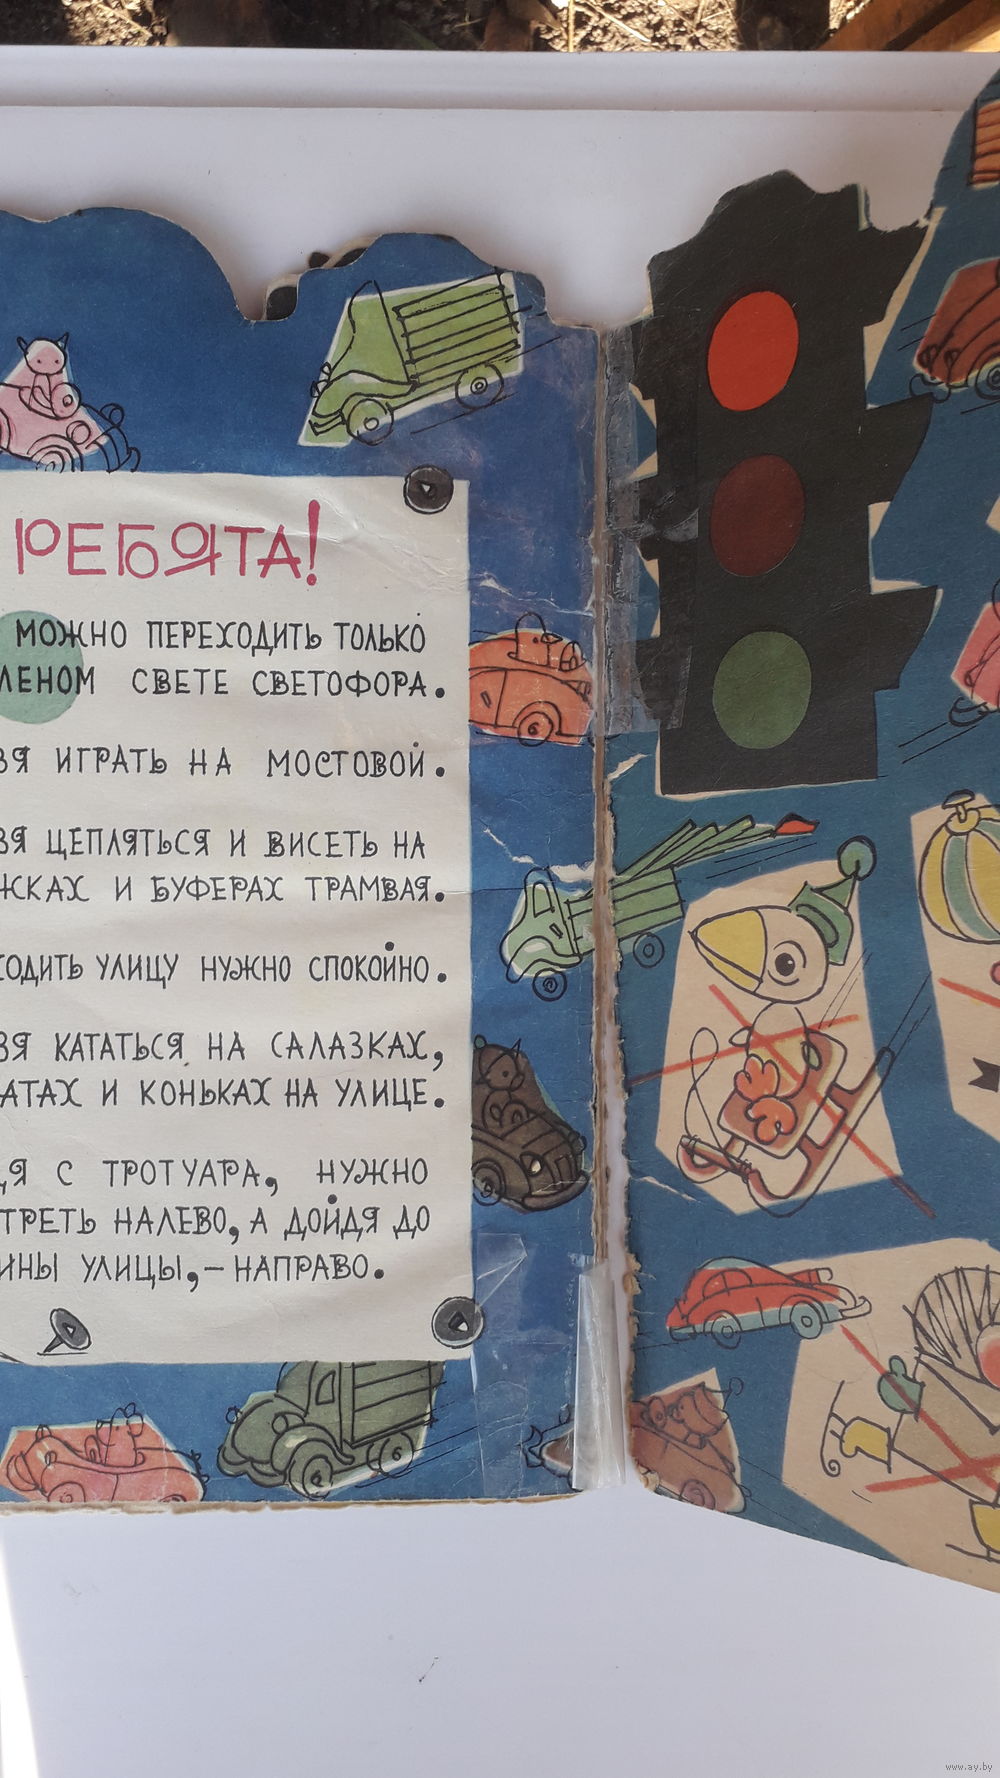 РЕБЯТА!
МОЖНО ПЕРЕХОДИТЬ ТОЛЬКО
ЛЕНОМ СВЕТЕ СВЕТОФОРА.
ЗЯ ИГРАТЬ НА МОСТОВОЙ.
ЗЯ ЦЕПЛЯТЬСЯ И ВИСЕТЬ НА
ЖКАХ И БУФЕРАХ ТРАМВАЯ.
ХОДИТЬ УЛИЦУ НУЖНО СПОКОЙНО.
ЗЯ КАТАТЬСЯ НА САЛАЗКАХ,
АТАХ И КОНЬКАХ НА УЛИЦЕ.
ДЯ С ТРОТУАРА, НУЖНО
ТРЕТЬ НАЛЕВО, А ДОЙДЯ ДО
ИНЫ УЛИЦЫ,—НАПРАВО.
www.ay.by